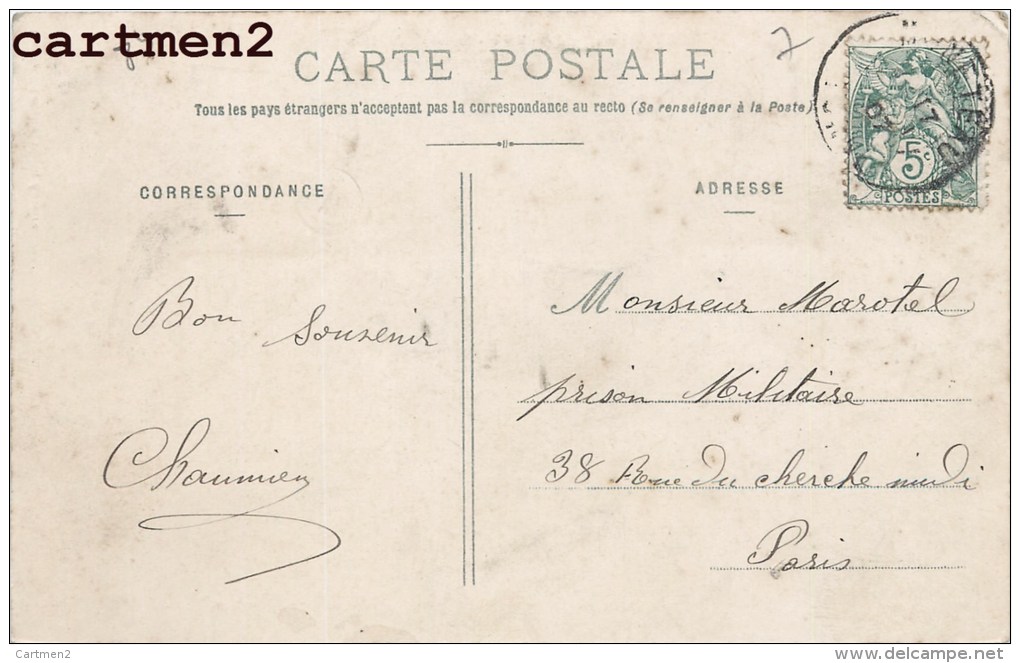 cartmen2
7
CARTE POSTALE
Tous les pays étrangers n'acceptent pas la correspondance au recto (Se renseigner à la Poste)
5c
POSTES
CORRESPONDANCE
ADRESSE
Bon Souvenir
Chaumien
Monsieur Marotel
prison Militaire
38 Rue du cherche midi
Paris
Cartmen2
www.delcampe.net